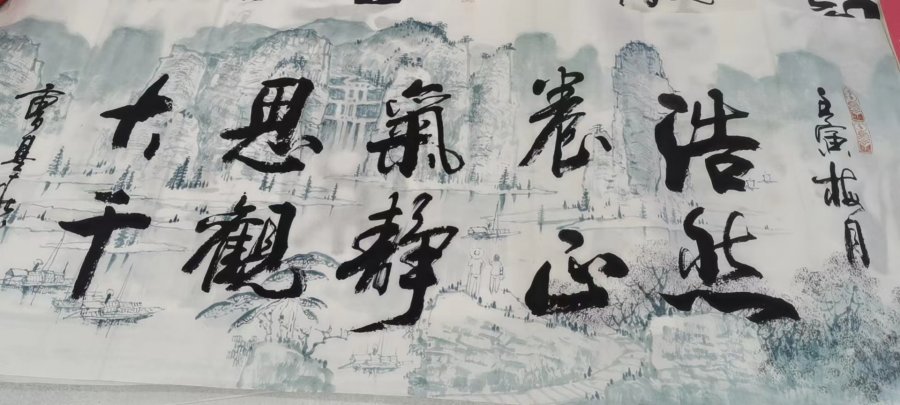 壬寅梅月
浩然
養正
氣靜
思觀
大千